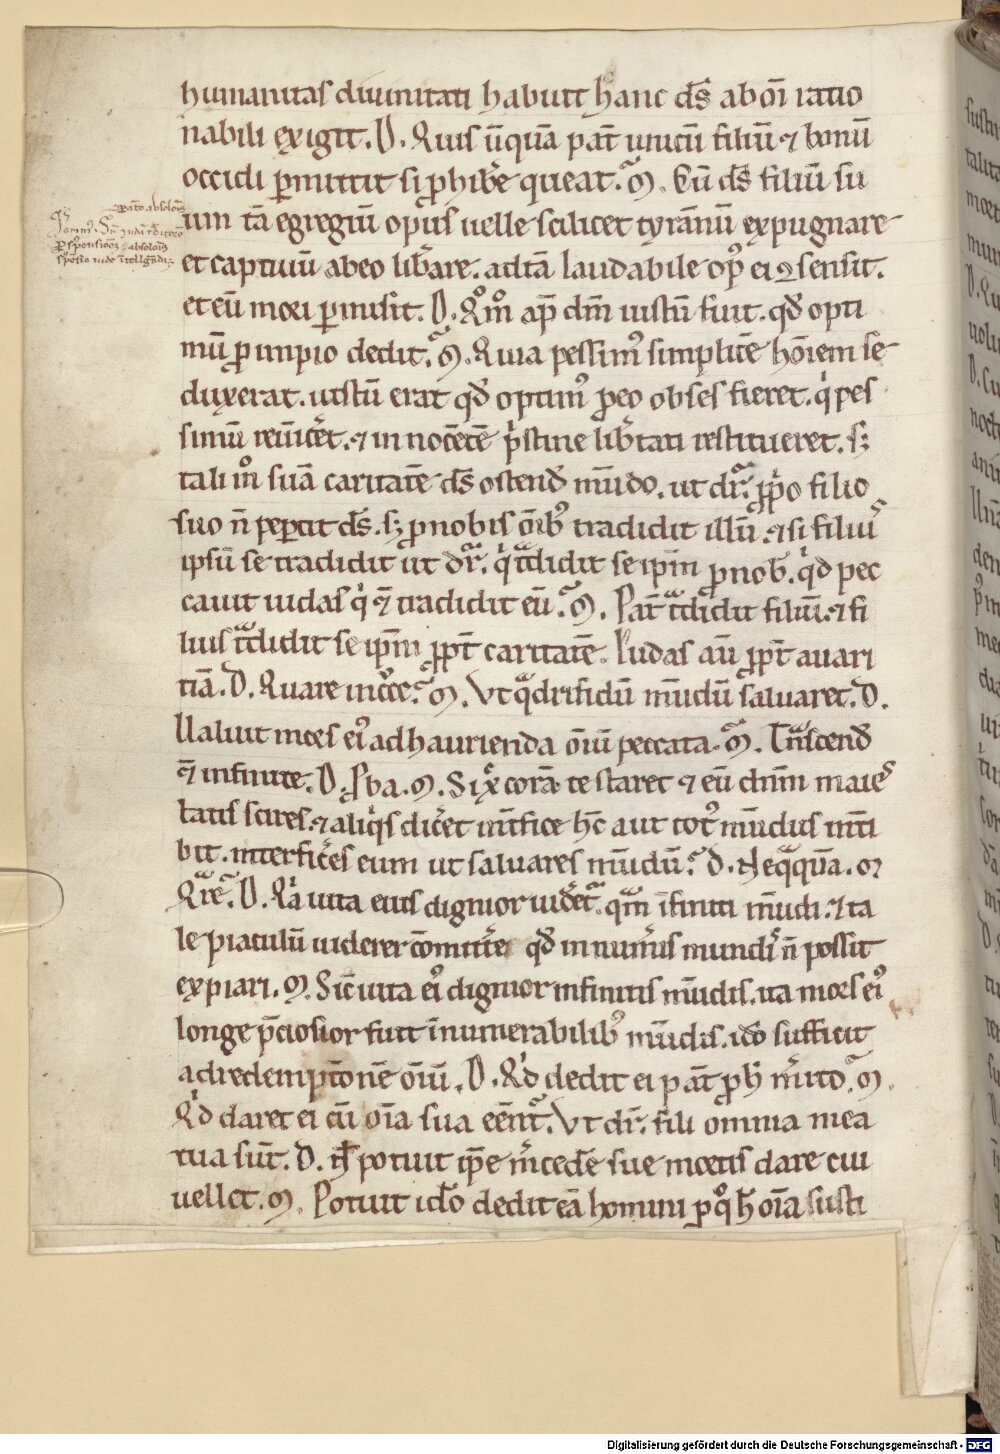 humanitas diuinitati habuit hanc ds̄ ab oī ratio
nabili exigit. D. Quis ūquā pat̄ unicū filiū ⁊ bonū
occidi p̄mittit si ꝓhib̄e queat. M. Cū ds̄ filiū su
um tā egregiū opus uelle scilicet tyrānū expugnare
et captiuū ab eo lib̄are. ad tā laudabile opꝰ ei ꝯsensit.
et eū mori ꝑmisit. D. Qͦmͦ ap̄ dm̄ iustū fuit. qd̄ opti
mū ꝓ impio dedit. M. Quia pessimꝰ simplicē hōiem se
duxerat. iustū erat qd̄ optimꝰ ꝓ eo obses fieret. qͥ pes
simū reuīcēt. ⁊ innocētē pͥstine lib̄tati restitueret. sꝫ
tali mͦ suā caritatē ds̄ ostend̄ mūdo. ut dr̄. ꝓpͥo filio
suo n̄ peꝑcit ds̄. sꝫ ꝓ nobis oīb̾ tradidit illū. ⁊ si filiuꝰ
ipsū se tradidit ut dr̄. qͥ tͣdidit se ipm̄ ꝓ nob̄. qͥd pec
cauit iudas qͥ ⁊ tradidit eū. M. Pat̄ tͣdidit filiū. ⁊ fi
lius tͣdidit se ipm̄ ꝓpt̄ caritatē. Iudas aū ꝓpt̄ auari
tiā. D. Quare in cͦce. M. Vt qͣdrifidū mūdū saluaret. D.
Ualuit mors eiꝰ ad haurienda oīū peccata. M. Tͣnscend̄
⁊ infinite. D. ꝓba. M. Si x̄ corā te staret ⁊ eū dnm̄ maies
tatis scires. ⁊ aliqͥs dicēt int̄fice hc̄ aut totꝰ mūdus int̄i
bit. interficēs eum ut saluares mūdū. D. Neqͣqūa. M
Qͣre. D. Qͥa uita eius dignior uidet̄. qͣm īfiniti mūdi. ⁊ ta
le piaculū uiderer cōmitt̄e qd̄ innum̄is mundis n̄ possit
expiari. M. Sic̄ uita eiꝰ dignior infinitis mūdis. ita mors eiꝰ
longe p̄ciosior fuit īnumerabilib̾ mūdis. idͦo sufficit
ad redemptōnē oīū. D. Qͥd dedit ei pat̄ ꝓ h̄ m̄ito. M.
Qͥd daret ei cū oīa sua eēnt. Vt dr̄. fili omnia mea
tua sūt. D. N̄ potuit ip̄e m̄cedē sue mortis dare cui
uellet. M. Potuit idͦo dedit eā homini ꝓ qͦ h̄ oīa susti